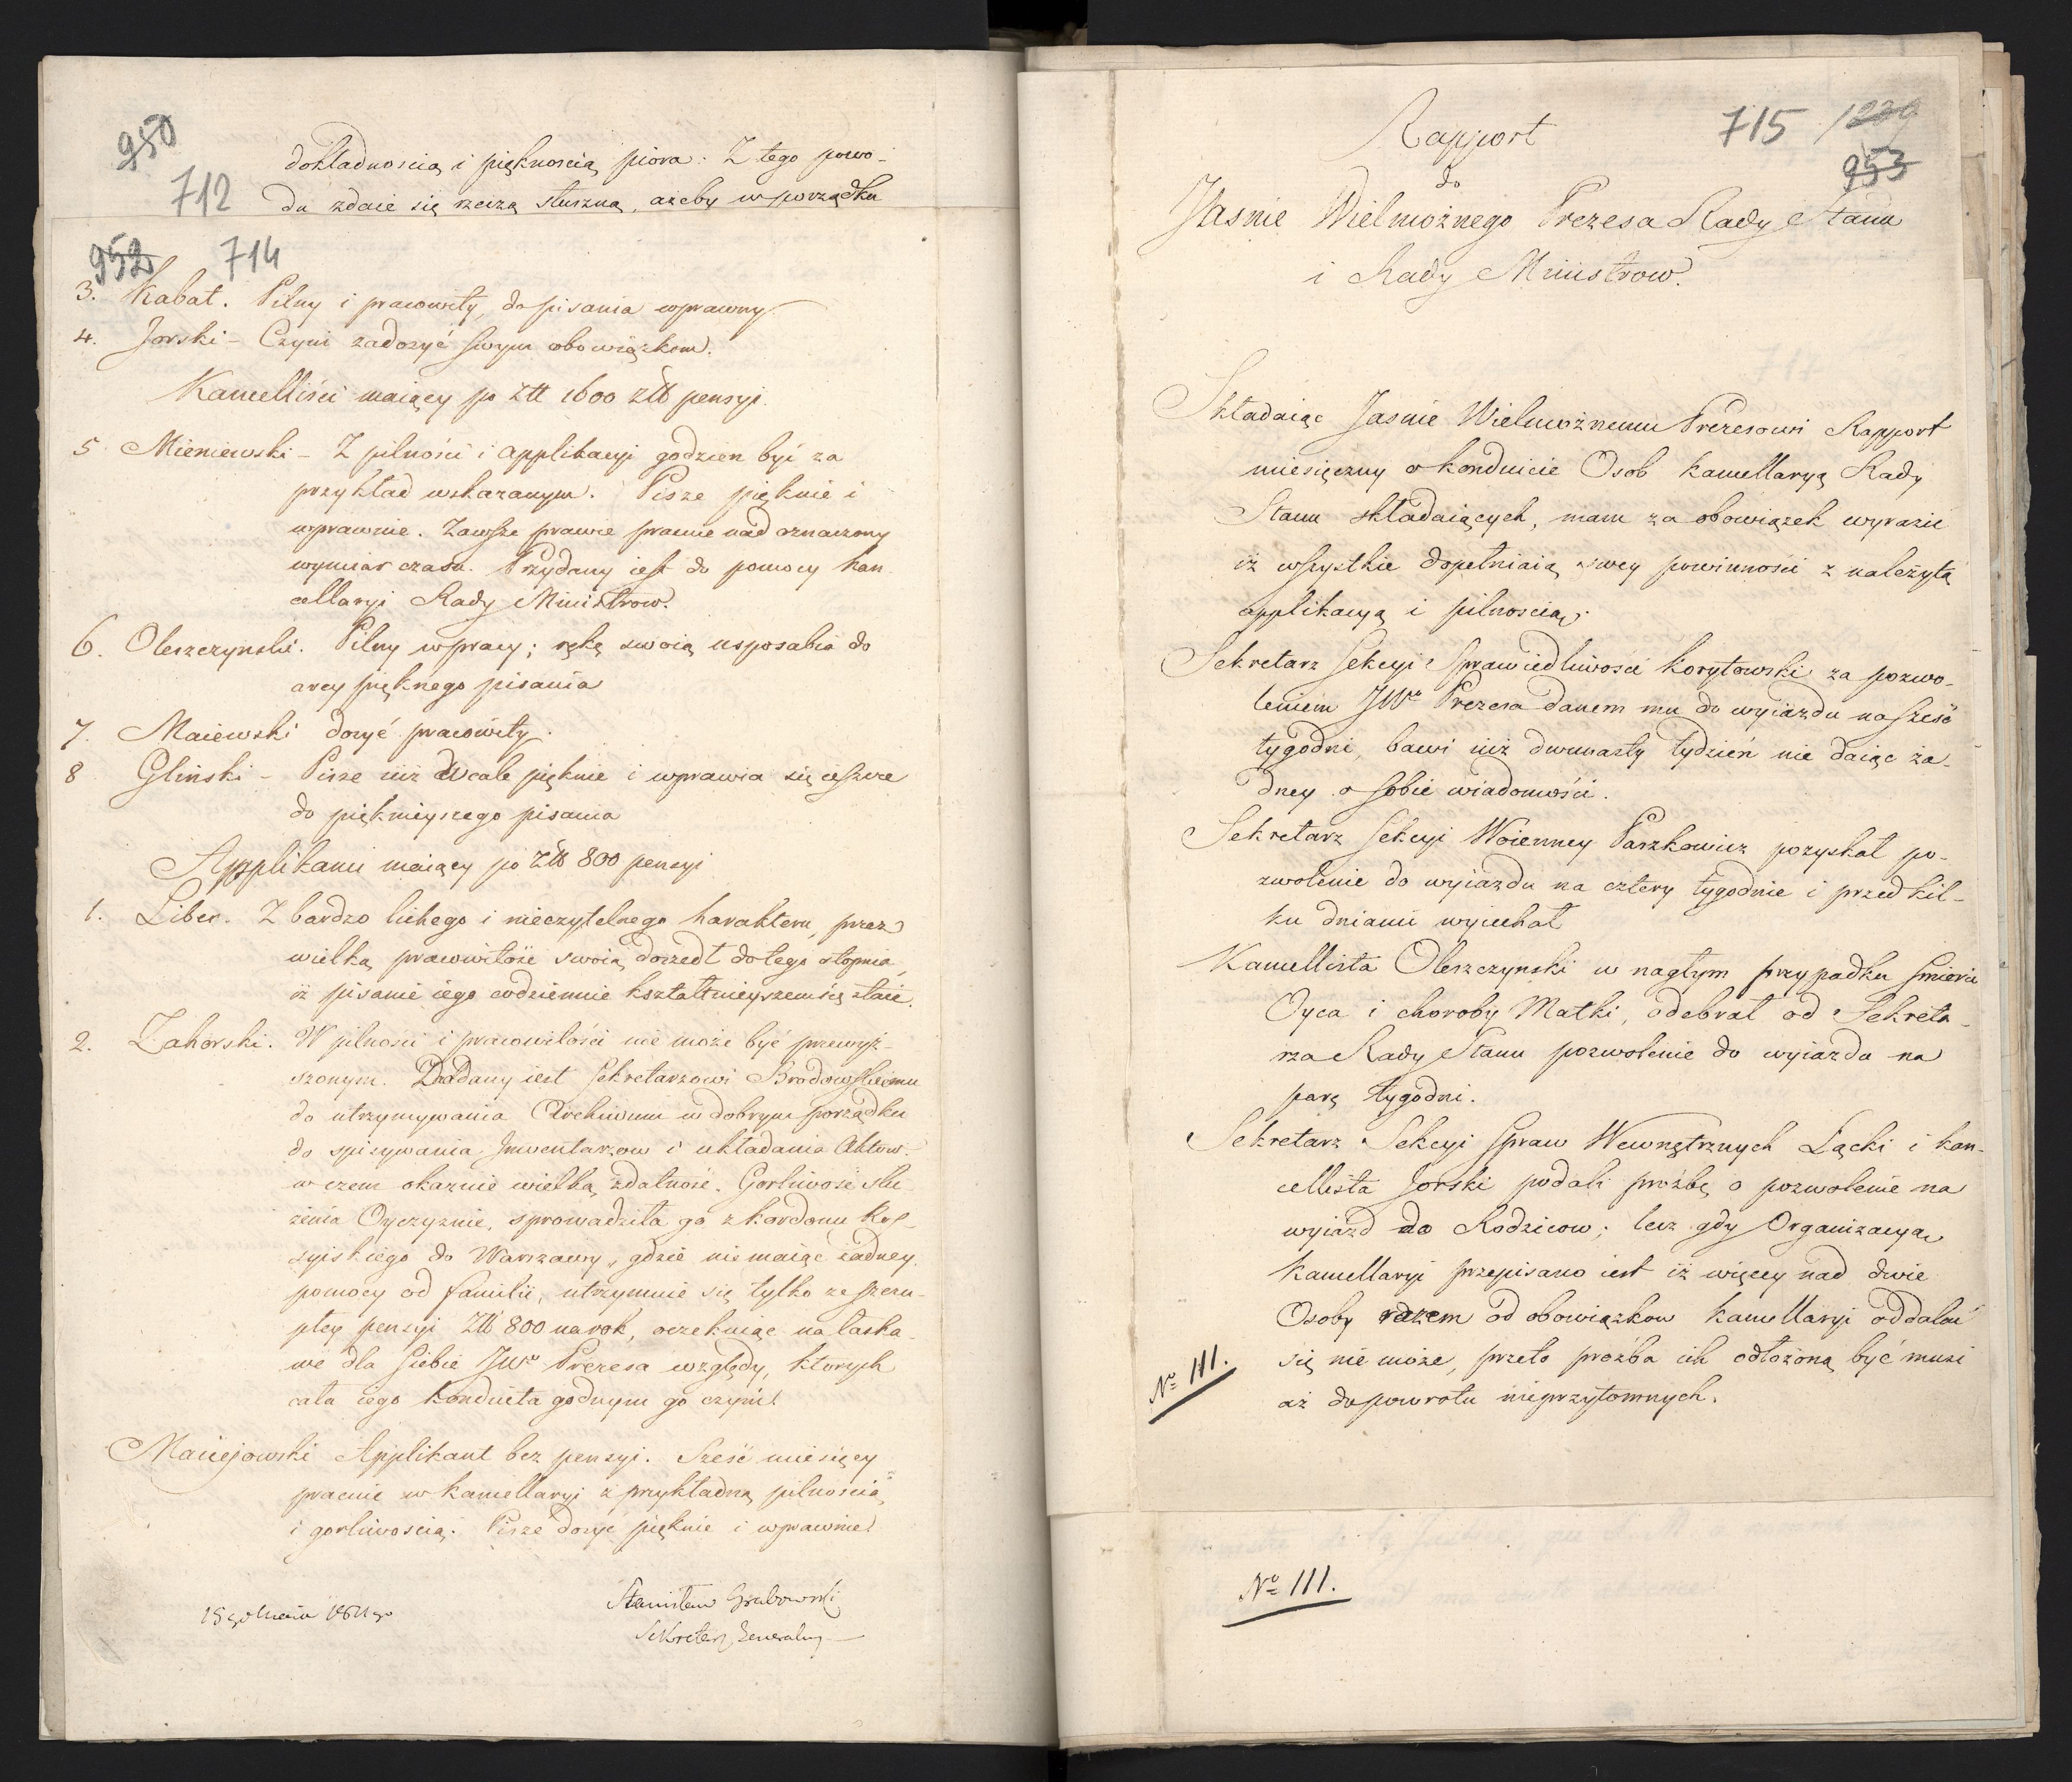 950
712
dokładnością i pięknością piora. Z tego powo-
du zdaie się rzeczą słuszną, ażeby w porządku
952 714
3. Kabat. Pilny i pracowity, do pisania wprawny.
4. Jorski - Czyni zadosyć swym obowiązkom.
Kancelliści maiący po złł 1600 złł pensyi.
5 Mieniewski - Z pilności i applikacyi godzien być za
przykład wskazanym. Pisze pięknie i
wprawnie. Zawsze prawie pracuie nad oznaczony
wymiar czasu. Przydany iest do pomocy kan-
cellaryi Rady Ministrow.
6. Oleszczynski. Pilny w pracy; rękę swoią usposabia do
arcy pięknego pisania
7. Maiewski dosyć pracowity.
8 Gliński - Pisze iuż wcale pięknie i wprawia się ieszcze
do pięknieyszego pisania
Applikanci maiący po złł 800 pensyi
1. Liber. Z bardzo lichego i nieczytelnego harakteru, przez
wielką pracowitość swoią doszedł do tego stopnia,
iż pisanie iego codziennie kształtnieyszem się staie.
2. Zahorski. W pilności i pracowitości nie może być przewyż-
szonym. Dodany iest Sekretarzowi Brodowskiemu
do utrzymywania Archiwum w dobrym porządku
do spisywania Inwentarzow i układania Aktow.
w czem okazuie wielką zdatność. Gorliwość słu-
żenia Oyczyznie, sprowadziła go z kordonu Ros-
syiskiego do Warszawy, gdzie nie maiąc żadney
pomocy od familii, utrzymuie się tylko ze szczu-
płey pensyi Złł 800 na rok, oczekuiąc na łaska-
we dla siebie JWo Prezesa względy, ktorych
cała iego konduita godnym go czyni.
Maciejowski Applikant bez pensyi. Sześć miesięcy
pracuie w kancellaryi z przykładną pilnością
i gorliwością. Pisze dosyć pięknie i wprawnie.
Stanisław Grabowski
Sekretarz Generalny
Rapport
715 1239
953
do
Jasnie Wielmożnego Prezesa Rady Stanu
i Rady Ministrow.
Składaiąc Jasnie Wielmożnemu Prezesowi Rapport
miesięczny o konduicie Osob kancellaryą Rady
Stanu składaiących, mam za obowiązek wyrazić
iż wszystkie dopełniaią swey powinności z należytą
applikacyą i pilnością.
Sekretarz Sekcyi Sprawiedliwości Korytowski za pozwo-
leniem JWo Prezesa danem mu do wyiazdu na sześć
tygodni, bawi iuż dwunasty tydzień nie daiąc ża-
dney o sobie wiadomości.
Sekretarz Sekcyi Woienney Paszkowicz pozyskał po-
zwolenie do wyiazdu na cztery tygodnie i przed kil-
ku dniami wyiechał
Kancellista Oleszczynski w nagłym przypadku śmierci
Oyca i choroby Matki, odebrał od Sekreta-
rza Rady Stanu pozwolenie do wyiazdu na
parę tygodni.
Sekretarz Sekcyi Spraw Wewnętrznych Łącki i kan-
cellista Jorski podali prożbę o pozwolenie na
wyiazd do Rodzicow; lecz gdy Organizacyą
kancellaryi przepisano iest iż więcey nad dwie
Osoby razem od obowiązkow kancellaryi oddalać
się nie może, przeto prożba ich odłożoną być musi
aż do powrotu nieprzytomnych.
No 111.
No 111.